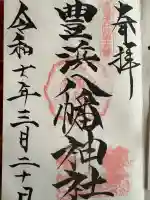 奉拝
豊浜八幡神社
令和七年三月二十日